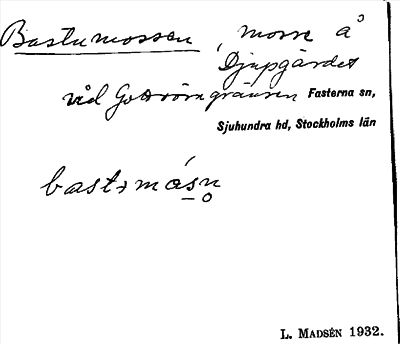 Bastumossen, mosse å
Djupgärdet
vid Gottrörngränsen Fasterna sn,
Sjuhundra hd, Stockholms län
bastɘmásn̥
L. MADSÉN 1932.